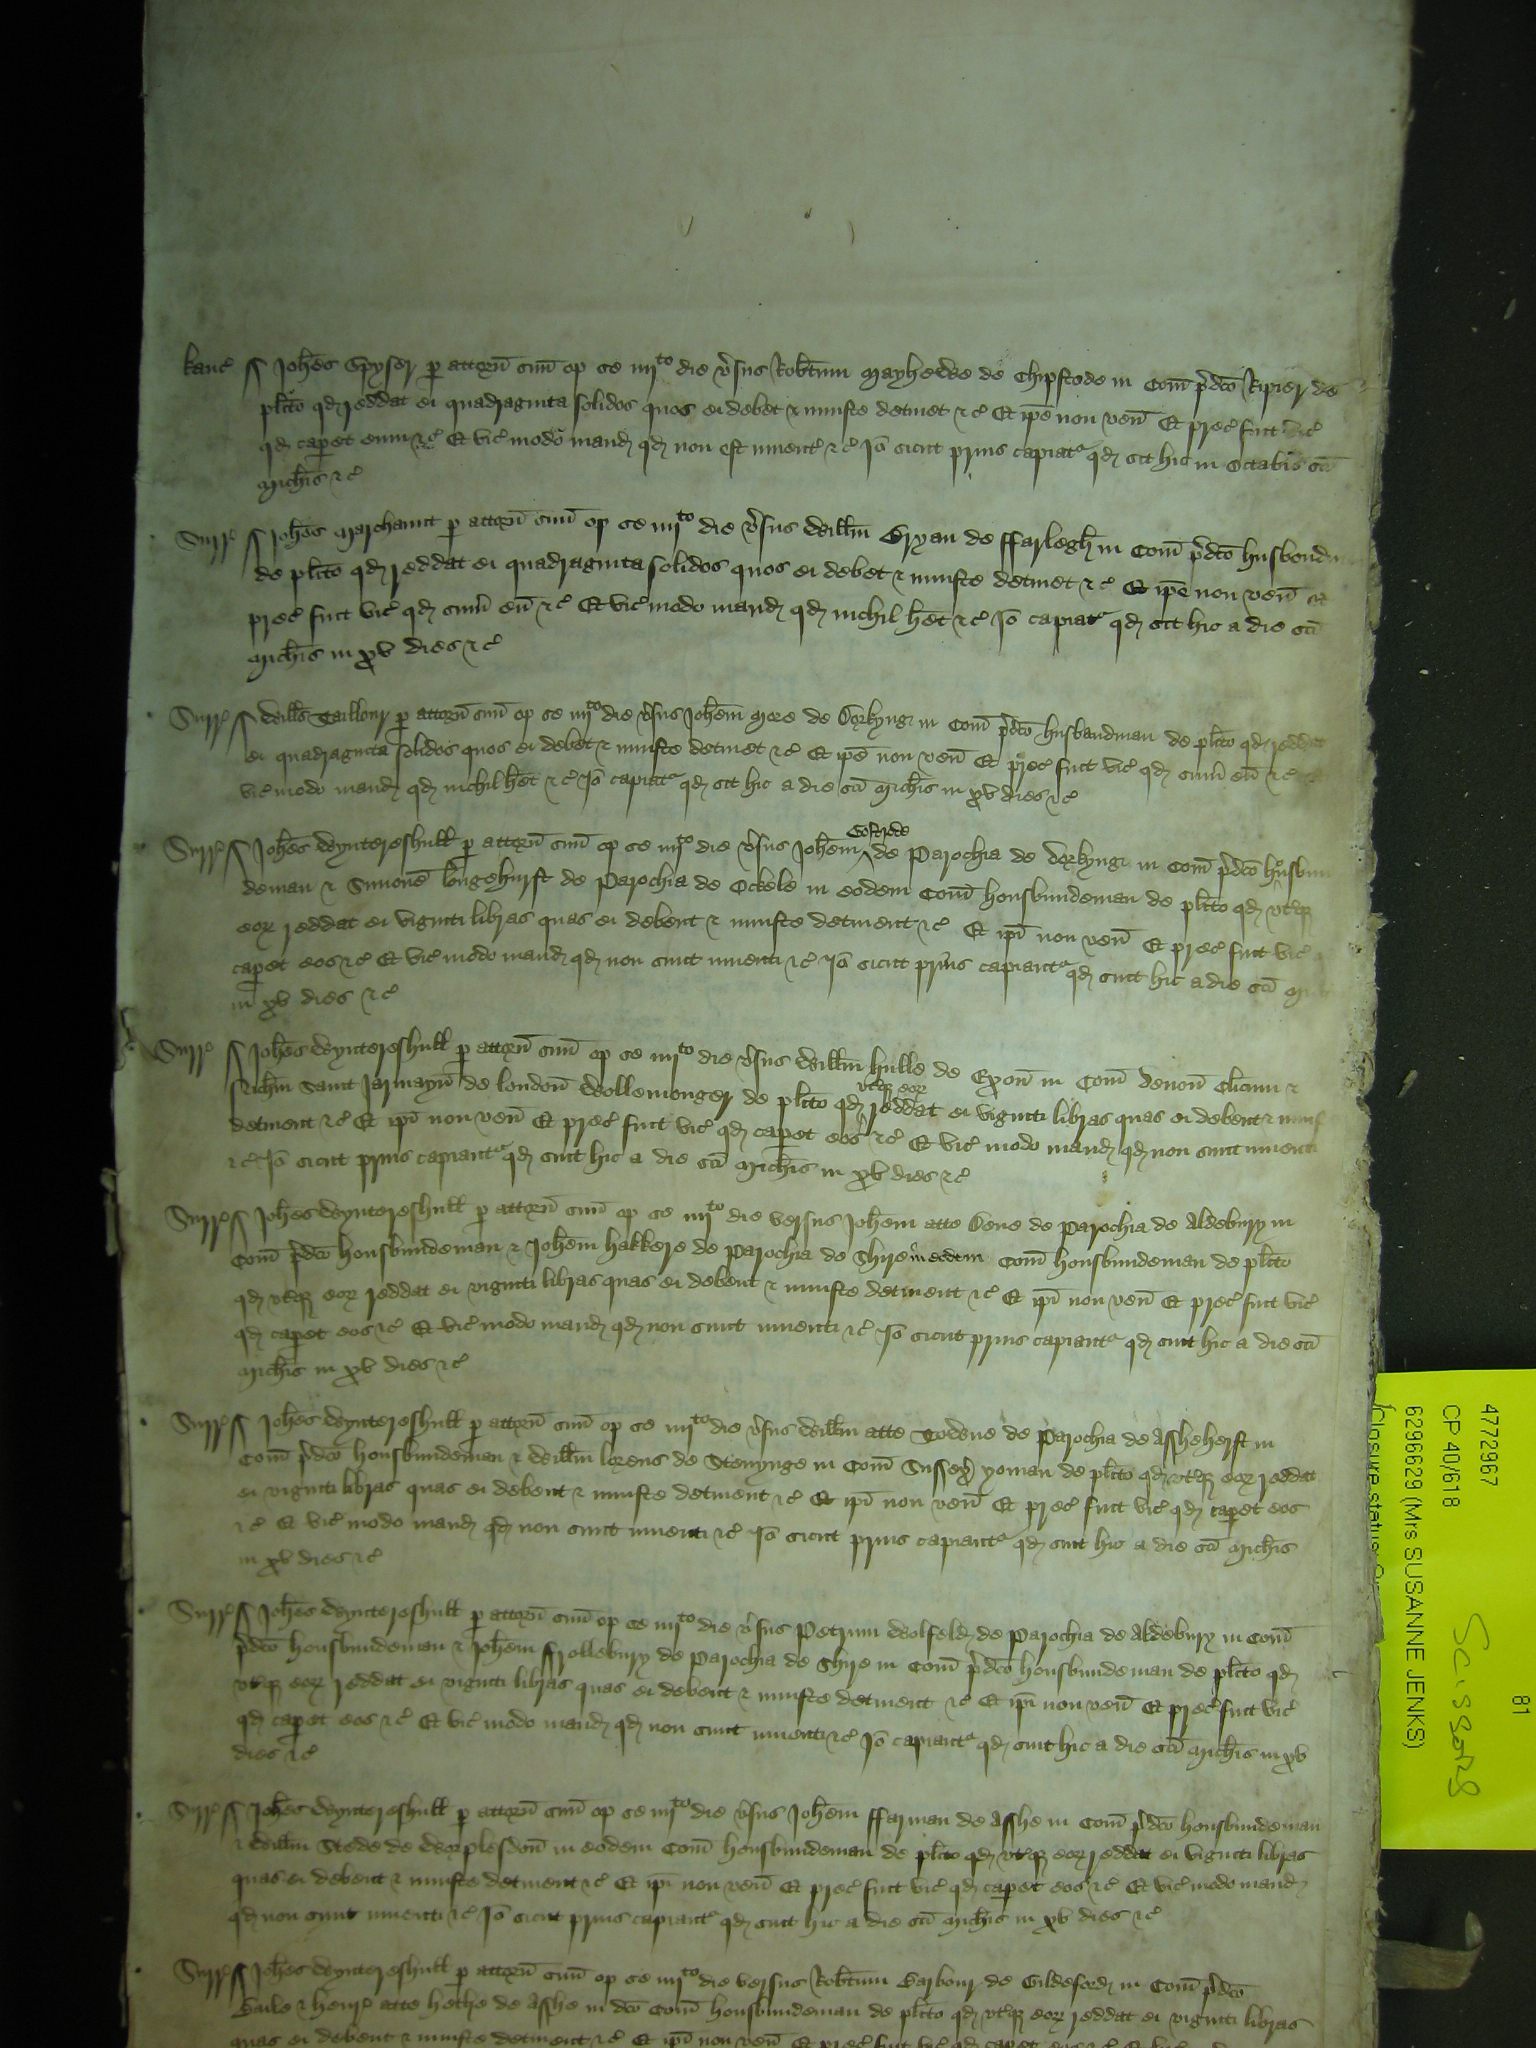 Kanc' Joh̄es Spyser p attorn̄ suū op se iiijto die v̄sus Rob̄tum Mayhewe de Chipstode in Com̄ p̄dc̄o Ripier de
pl̄ito qd reddat ei quadraginta solidos quos ei debet & iniuste detinet &c̄ Et ip̄e non ven̄ Et prec' fuit vic'
qd cap̄et eum &c̄ Et vic' modo mand' qd non est inuent' &c̄ Io sicut prius capiat' qd sit hic in Octabis sc̄i
Mich̄is &c̄
Surr' Joh̄es Marchaunt p attorn̄ suū op se iiijto die v̄sus Will̄m Bryan de Ffarlegh in Com̄ p̄dc̄o husbond
de pl̄ito qd reddat ei quadraginta solidos quos ei debet & iniuste detinet &c̄ Et ip̄e non ven̄ Et
prec' fuit vic' qd sum̄ eū &c̄ Et vic' modo mand' qd nichil h̄et &c̄ Io capiat' qd sit hic a die sc̄i
Mich̄is in xv dies &c̄
Surr' Will̄s Taillour p attorn̄ suū op se iiijto die v̄sus Joh̄em More de Dorkyng' in Com̄ p̄dc̄o husbandman de pl̄ito qd reddat
ei quadraginta solidos quos ei debet & iniuste detinet &c̄ Et ip̄e non ven̄ Et prec' fuit vic' qd sum̄ eū &c̄
vic' modo mand' qd nichil h̄et &c̄ Io capiat' qd sit hic a die sc̄i Mich̄is in xv dies &c̄
Surr' Joh̄es Wyntereshull p attorn̄ suū op se iiijto die v̄sus Joh̄em Gostrode de Parochia de Dorkyng' in Com̄ p̄dc̄o housbun
deman & Simonē Longehurst de Parochia de Ockele in eodem Com̄ housbundeman de pl̄ito qd vt'q
eor reddat ei viginti libras quas ei debent & iniuste detinent &c̄ Et ip̄i non ven̄ Et prec' fuit vic'
cap̄et eos &c̄ Et vic' modo mand' qd non sunt inuenti &c̄ Io sicut prius capiant' qd sint hic a die sc̄i
in xv dies &c̄
Surr' Joh̄es Wyntereshull p attorn̄ suū op se iiijto die v̄sus Will̄m Hulle de Exon̄ in Com̄ Deuon̄ Cl̄icum &
Ric̄m Saint Jarmayn̄ de London̄ Wollemonger de pl̄ito qd vt'q eor reddat ei viginti libras quas ei debent &
detinent &c̄ Et ip̄i non ven̄ Et prec' fuit vic' qd cap̄et eos &c̄ Et vic' modo mand' qd non sunt inuenti
&c̄ Io sicut prius capiant' qd sint hic a die sc̄i Mich̄is in xv dies &c̄
Surr' Joh̄es Wyntereshull p attorn̄ suū op se iiijto die versus Joh̄em atte Dene de Parochia de Aldebury in
Com̄ p̄dc̄o housbundeman & Joh̄em Hakkere de Parochia de Shire in eodem Com̄ housbundeman de pl̄ito
qd vt'q eor reddat ei viginti libras quas ei debent & iniuste detinent &c̄ Et ip̄i non ven̄ Et prec' fuit vic'
qd cap̄et eos &c̄ Et vic' modo mand' qd non sunt inuenti &c̄ Io sicut prius capiant' qd sint hic a die sc̄i
Mich̄is in xv dies &c̄
Surr' Joh̄es Wyntereshull p attorn̄ suū op se iiijto die v̄sus Will̄m atte Towne de Parochia de Assheherst in
Com̄ p̄dc̄o housbundeman & Will̄m Lorens de Stenynge in Com̄ Sussex' yoman de pl̄ito qd vt'q eor reddat
ei viginti libras quas ei debent & iniuste detinent &c̄ Et ip̄i non ven̄ Et prec' fuit vic' qd cap̄et eos
&c̄ Et vic' modo mand' qd non sunt inuenti &c̄ Io sicut prius capiant' qd sint hic a die sc̄i Mich̄is
in xv dies &c̄
Surr' Joh̄es Wyntereshull p attorn̄ suū op se iiijto die v̄sus Petrum Wolfeld de Parochia de Aldebury in Com̄
p̄dc̄o housbundeman & Joh̄em Frollebury de Parochia de Shire in Com̄ p̄dc̄o housbundeman de pl̄ito qd
vt'q eor reddat ei viginti libras quas ei debent & iniuste detinent &c̄ Et ip̄i non ven̄ Et prec' fuit vic'
qd cap̄et eos &c̄ Et vic' modo mand' qd non sunt inuenti &c̄ Io capiant' qd sint hic a die sc̄i Mich̄is in xv
dies &c̄
Surr' Joh̄es Wyntereshull p attorn̄ suū op se iiijto die v̄sus Joh̄em Ffarman de Asshe in Com̄ p̄dc̄o housbundeman
& Will̄m Stede de Worplesdon̄ in eodem Com̄ housbundeman de pl̄ito qd vt'q eor reddat ei viginti libras
quas ei debent & iniuste detinent &c̄ Et ip̄i non ven̄ Et prec' fuit vic' qd cap̄et eos &c̄ Et vic' modo mand'
qd non sunt inuenti &c̄ Io sicut prius capiant' qd sint hic a die sc̄i Mich̄is in xv dies &c̄
Surr' Joh̄es Wyntereshull p attorn̄ suū op se iiijto die versus Rob̄tum Barbour de Gildeford in Com̄ p̄dc̄o
Baile & Henr' atte Hethe de Asshe in dc̄o Com̄ housbundeman de pl̄ito qd vt'q eor reddat ei viginti libras
quas ei debent & iniuste detinent &c̄ Et ip̄i non ven̄ Et prec' fuit vic' qd cap̄et eos
81
4772967
CP 40/618
6296629 (Mrs SUSANNE JENKS)
Closure status